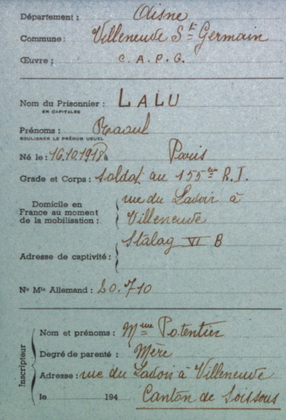 Département : Aisne
Commune : Villeneuve St Germain
Œuvre : C.A.P.G.
Nom du Prisonnier : LALU
EN CAPITALES
Prénoms : Raoul
SOULIGNER LE PRÉNOM USUEL
Né le : 16.10.1918 à Paris
Grade et Corps : soldat au 155me R.I.
Domicile en France au moment de la mobilisation : rue du Lavoir à
Villeneuve
Adresse de captivité : Stalag VI B
No Mle Allemand : 20.710
Inscripteur
Nom et prénoms : Mme Potentier
Degré de parenté : Mère
Adresse : rue du Lavoir à Villeneuve
le 194 Canton de Soissons